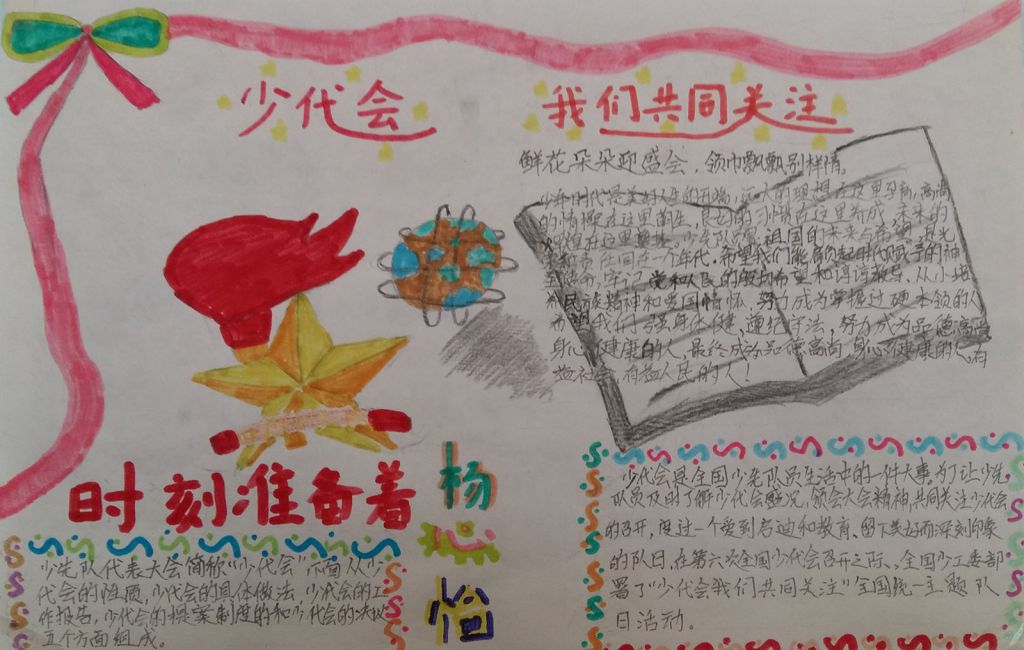 少代会
我们共同关注
鲜花朵朵迎盛会，领巾飘飘别样情。
少年时代是美好人生的开端，远大的理想在这里孕育，高尚
的情操在这里萌生，良好的习惯在这里养成，
少先队员是祖国的未来与希望。
希望我们能
党和人民的殷切希望和谆谆教导，从小培
养民族精神和爱国情怀，努力成为掌握过硬本领的人
我们强身体健，遵纪守法，努力成为品德高尚
身心健康的人，最终成为品德高尚，身心健康的人，有
益社会，有益人民的人！
时刻准备着
杨
心
怡
少先队代表大会简称“少代会”，下面从少
代会的性质，少代会的具体做法，少代会的工
作报告，少代会的提案制度的和少代会的决议
五个方面组成。
少代会是全国少先队员生活中的一件大事。为了让少先
队员及时了解少代会盛况，领会大会精神，共同关注少代会
的召开，度过一个受到启迪和教育、留下美好而深刻印象
的队日，在第六次全国少代会召开之际，全国少工委部
署了“少代会我们共同关注”全国统一主题队
日活动。